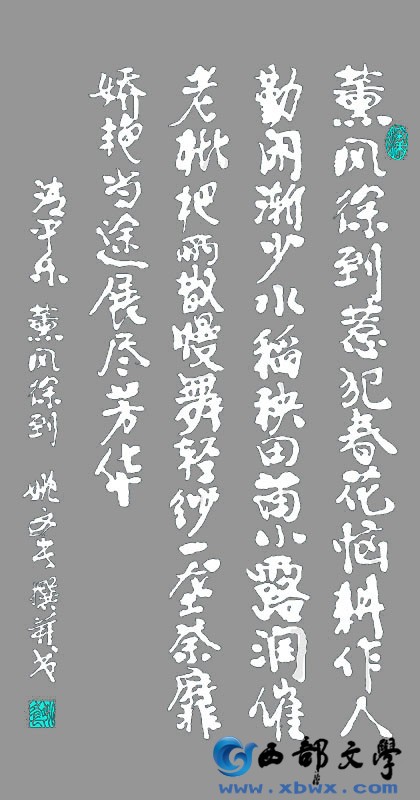 薰风徐到惹犯春花恼耕作人
勤闲渐少水稻秧田苗小露润催
老枇杷雨散慢舞轻纱一垄荼靡
娇艳当途展尽芳华
清平乐 薰风徐到 姚文撰并书
西部文學
www.xbwx.com